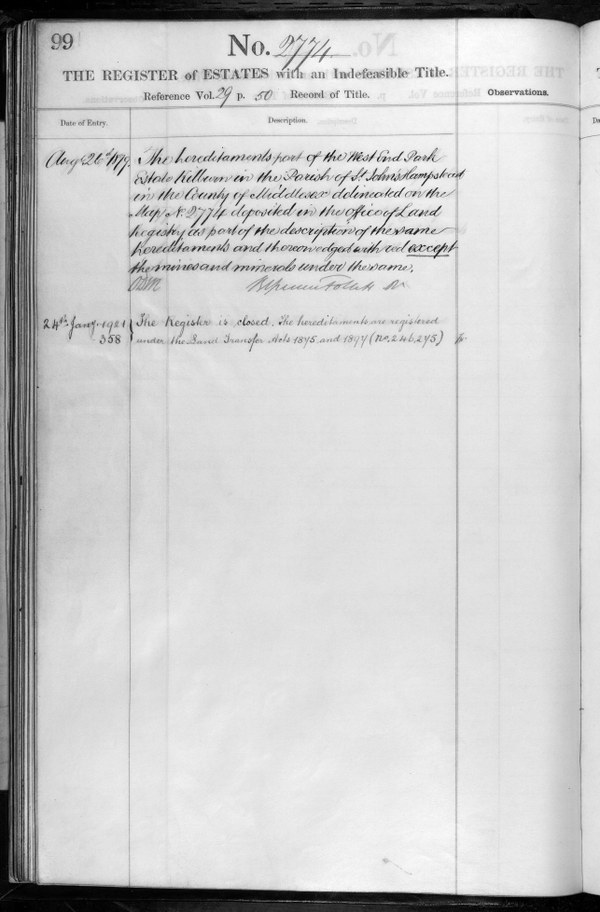 99
No. 2774
THE REGISTER of ESTATES with an Indefeasible Title.
Reference Vol. 29 p. 50 Record of Title.
Observations.
Date of Entry.
Description.
Aug 26th 1879. The hereditaments part of the West End Park
Estate Kilburn in the Parish of St. John's Hampstead
in the County of Middlesex delineated on the
Map No. 2774 deposited in the office of Land
Registry as part of the description of the same
hereditaments and thereon edged with red except
the mines and minerals under the same.
Follett
24th Jany. 1921 The Register is closed. The hereditaments are registered
358 under the Land Transfer Acts 1875 and 1897 (No. 246,275)